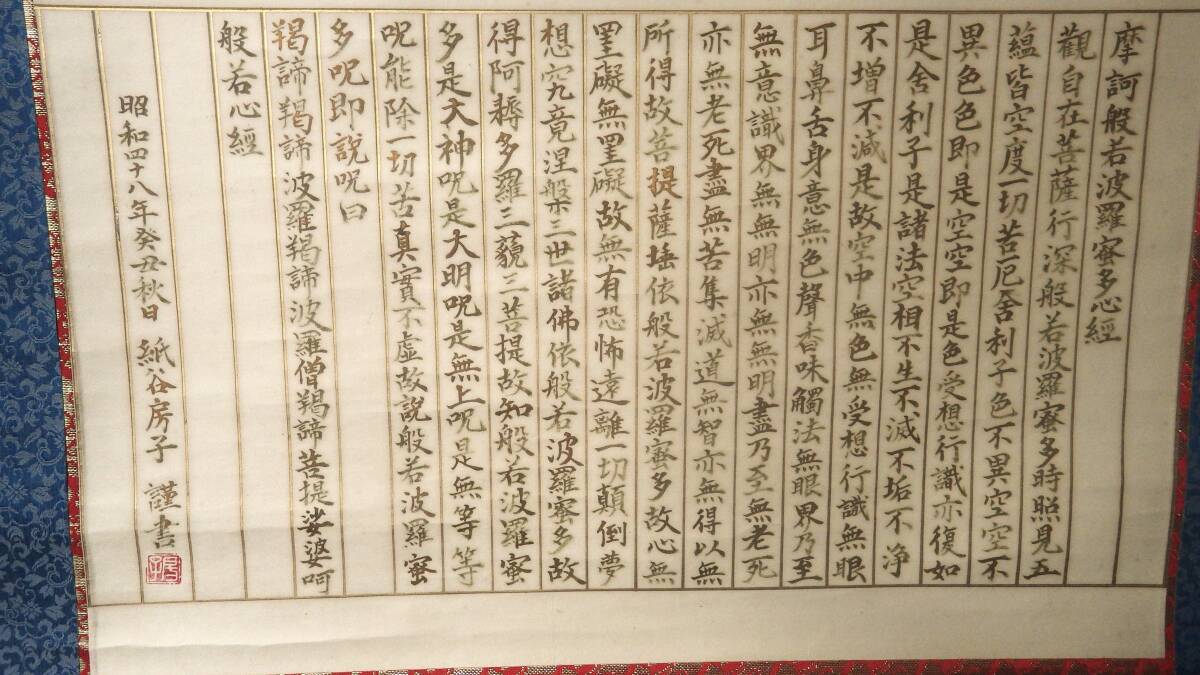 摩訶般若波羅蜜多心經
觀自在菩薩行深般若波羅蜜多時照見五
蘊皆空度一切苦厄舍利子色不異空空不
異色色即是空空即是色受想行識亦復如
是舍利子是諸法空相不生不滅不垢不净
不增不減是故空中無色無受想行識無眼
耳鼻舌身意無色聲香味觸法無眼界乃至
無意識界無無明亦無無明盡乃至無老死
亦無老死盡無苦集滅道無智亦無得以無
所得故菩提薩埵依般若波羅蜜多故心無
罣礙無罣礙故無有恐怖遠離一切顛倒夢
想究竟涅槃三世諸佛依般若波羅蜜多故
得阿耨多羅三藐三菩提故知般若波羅蜜
多是大神呪是大明呪是無上呪是無等等
呪能除一切苦真實不虛故說般若波羅蜜
多呪即說呪曰
羯諦羯諦波羅羯諦波羅僧羯諦菩提娑婆呵
般若心經
昭和四十八年癸丑秋日 紙谷房子 謹書
房子